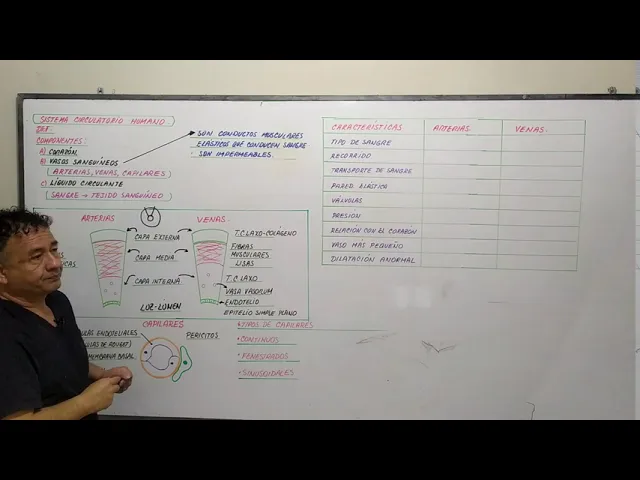 SISTEMA CIRCULATORIO HUMANO
DEF.
COMPONENTES:
A) CORAZÓN.
B) VASOS SANGUÍNEOS
(ARTERIAS, VENAS, CAPILARES)
C) LÍQUIDO CIRCULANTE
(SANGRE → TEJIDO SANGUÍNEO)
SON CONDUCTOS MUSCULARES
ELÁSTICOS QUE CONDUCEN SANGRE
SON IMPERMEABLES.
ARTERIAS
VENAS
CAPA EXTERNA
CAPA MEDIA
CAPA INTERNA
LUZ-LUMEN
T.C.LAXO-COLÁGENO
FIBRAS
MUSCULARES
LISAS
T.C.LAXO
VASA VASORUM
ENDOTELIO
EPITELIO SIMPLE PLANO
CAPILARES
ENDOTELIALES
MEMBRANA BASAL
PERICITOS
TIPOS DE CAPILARES
CONTINUOS
FENESTRADOS
SINUSOIDALES
CARACTERISTICAS ARTERIAS VENAS
TIPO DE SANGRE
RECORRIDO
TRANSPORTE DE SANGRE
PARED ELÁSTICA
VÁLVULAS
PRESION
RELACIÓN CON EL CORAZÓN
VASO MÁS PEQUEÑO
DILATACIÓN ANORMAL